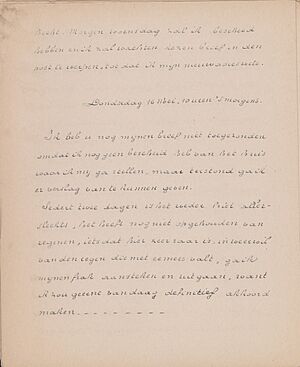 Recht. Morgen woensdag zal ik bescheid
hebben en ik zal wachten dezen brief in den
post te werpen, tot dat ik mijn nieuw adres
Donderdag 16 Nov., 10 uren 's morgens.
Ik heb u nog mijnen brief niet toegezonden
omdat ik nog geen bescheid heb van het huis
waar ik mij ga stellen, maar terstond ga ik
er verslag van te kunnen geven.
Sedert twee dagen is het weder hier aller-
slechts, het heeft nog niet opgehouden van
regenen, iets dat hier zeer raar is, in weerwil
van den regen die met eemers valt, ga ik
mijnen frak aansteken en uitgaan, want
ik zou geerne vandaag definitief akkoord
maken. - - - - - - - -